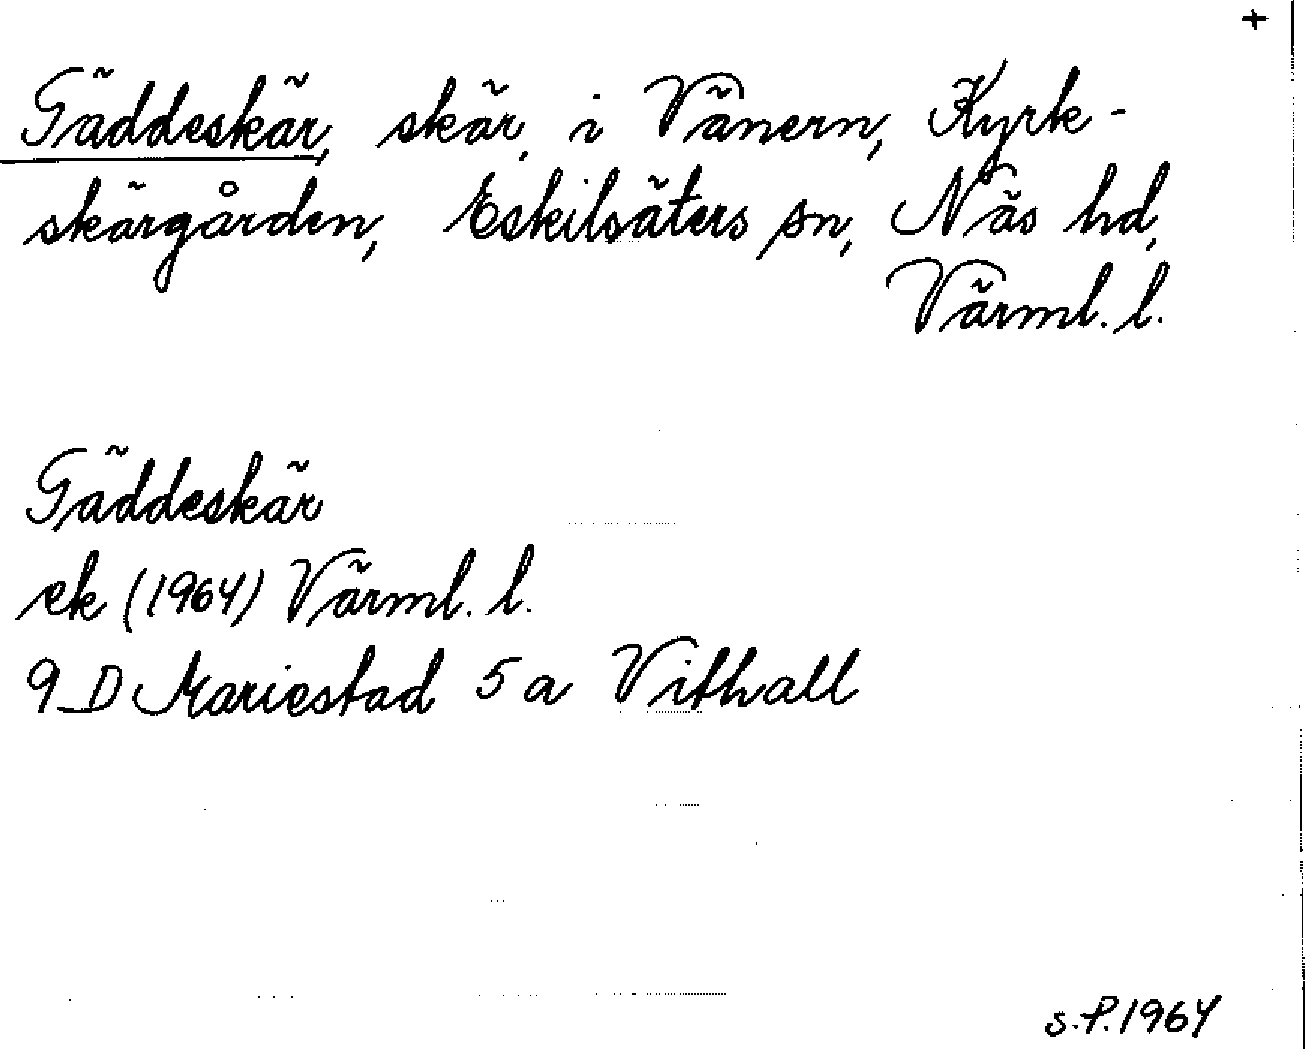 +
Gäddeskär, skär, i Vänern, Kyrk-
skärgården, Eskilsäters sn, Näs hd,
Värml. l.
Gäddeskär
ek (1964) Värml. l.
9 D Mariestad 5 a Vithall
S.P. 1964